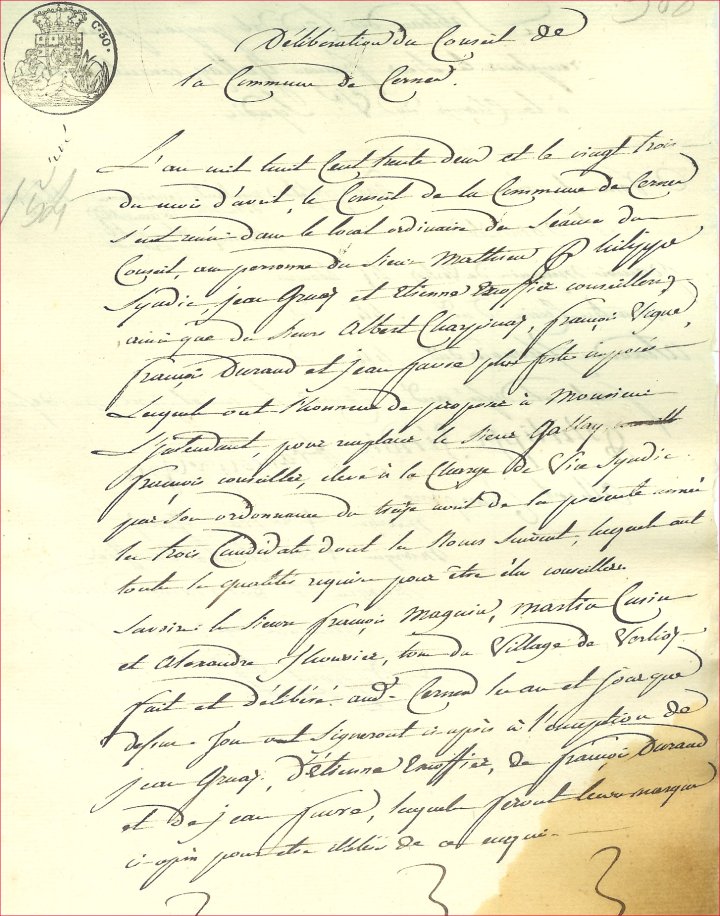 C. 50.
Délibération du Conseil de
la Commune de Cernex.
L'an mil huit Cent trente deux et le vingt trois
du mois d'avril, le Conseil de la Commune de Cernex
s'est réuni dans le local ordinaire des séances du
Conseil, au personne du Sieur Mathieu Philippe
Syndic, jean Gruaz et Etienne Emoffiez conseillers
ainsi que du Sieurs Albert Charpinaz, françois Vigne,
françois Durand et jean favre plus forts imposés
Lesquels ont l'honneur de proposer à Monsieur
L'Intendant, pour remplacer le sieur Gallay
françois conseiller, élevé à la Charge de Vice Syndic
par son ordonnance du treize avril de la présente année
les trois Candidats dont les Noms suivent, lesquels ont
toute les qualités requises pour être élu conseillers.
Savoir: le Sieurs françois Magnin, martin Cusin
et Alexandre thouvier, tous du Village de Verlioz
fait et délibéré aud. Cernex les an et jour que
dessus. Tous ont signeront ci-après à l'exception de
jean Gruaz, d'Etienne Emoffiez, de françois Durand
et de jean favre, lesquels feront leurs marques
ci-après pour être illétrés de ce enquis.